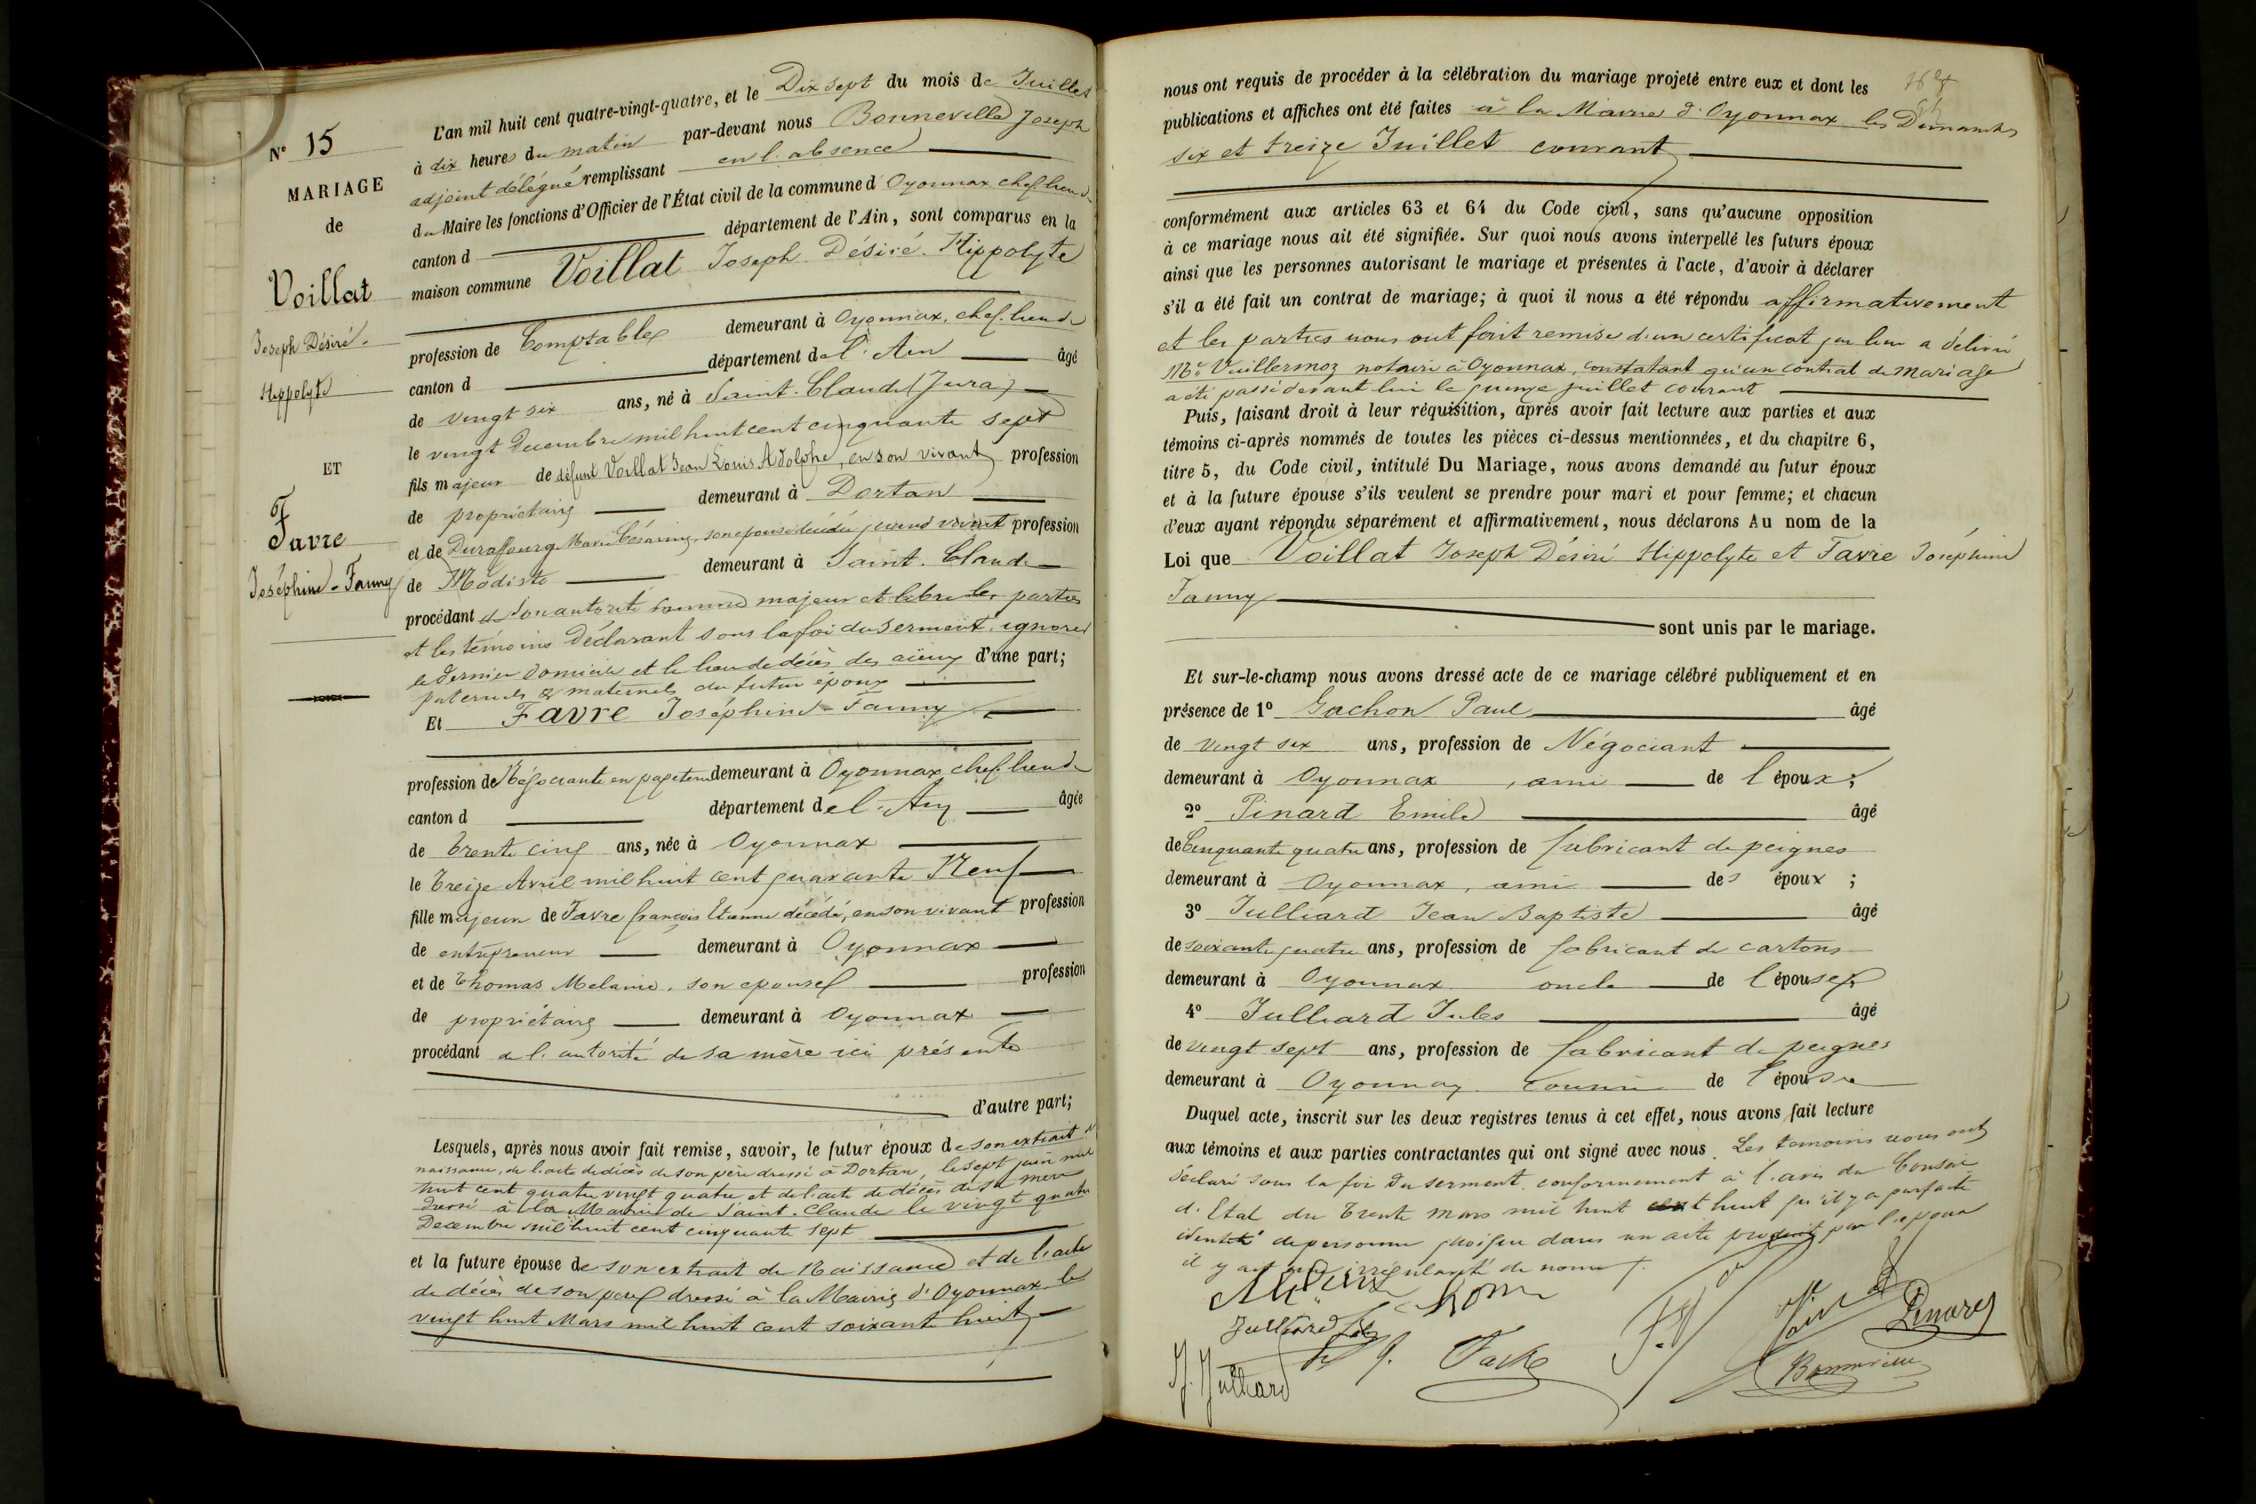 N° 15
MARIAGE
de
Voillat
Joseph Désiré
Hippolyte
ET
Favre
Joséphine-Fanny
L'an mil huit cent quatre-vingt-quatre, et le Dix sept du mois de Juillet
à dix heures du matin par-devant nous Bonneville Joseph
adjoint délégué remplissant en l'absence
du Maire les fonctions d'Officier de l'État civil de la commune d'Oyonnax chef-lieu de
canton d département de l'Ain, sont comparus en la
maison commune Voillat Joseph Désiré Hippolyte
profession de Comptable demeurant à Oyonnax, chef-lieu de
canton d département de l'Ain âgé
de vingt six ans, né à Saint-Claude (Jura)
le vingt Decembre mil huit cent cinquante sept
fils majeur de défunt Voillat Jean Louis Adolphe, en son vivant profession
de propriétaire demeurant à Dortan
et de Duraffourg Marie Césarine, son épouse décédée quand vivait profession
de Modiste demeurant à Saint-Claude
procédant de son autorité comme majeur et libre les parties
et les témoins déclarant sous la foi du serment, ignorer
le dernier domicile et le lieu de décès des aïeux d'une part;
paternels & maternels du futur époux
Et Favre Joséphine-Fanny
profession de Négociante en papeterie demeurant à Oyonnax chef-lieu de
canton d département de l'Ain âgée
de trente cinq ans, née à Oyonnax
le treize Avril mil huit cent quarante Neuf
fille majeure de Favre françois Etienne décédé, en son vivant profession
de entrepreneur demeurant à Oyonnax
et de Thomas Melanie, son epouse profession
de propriétaire demeurant à Oyonnax
procédant de l'autorité de sa mère ici présente
d'autre part;
Lesquels, après nous avoir fait remise, savoir, le futur époux de son extrait de
naissance, de l'acte de décès de son père dressé à Dortan, le sept juin mil
huit cent quatre vingt quatre et de l'acte de décès de sa mère
dressé à la Mairie de Saint-Claude le vingt quatre
Decembre mil huit cent cinquante sept
et la future épouse de son extrait de Naissance et de l'acte
de décès de son père dressé à la Mairie d'Oyonnax le
vingt huit Mars mil huit cent soixante huit
nous ont requis de procéder à la célébration du mariage projeté entre eux et dont les
publications et affiches ont été faites à la Mairie d'Oyonnax les Dimanches
six et treize Juillet courant
conformément aux articles 63 et 64 du Code civil, sans qu'aucune opposition
à ce mariage nous ait été signifiée. Sur quoi nous avons interpellé les futurs époux
ainsi que les personnes autorisant le mariage et présentes à l'acte, d'avoir à déclarer
s'il a été fait un contrat de mariage; à quoi il nous a été répondu affirmativement
et les parties nous ont fait remise d'un certificat que leur a délivré
Me Vuillermoz notaire à Oyonnax, constatant qu'un contrat de mariage
a été passé devant lui le quinze juillet courant
Puis, faisant droit à leur réquisition, après avoir fait lecture aux parties et aux
témoins ci-après nommés de toutes les pièces ci-dessus mentionnées, et du chapitre 6,
titre 5, du Code civil, intitulé Du Mariage, nous avons demandé au futur époux
et à la future épouse s'ils veulent se prendre pour mari et pour femme; et chacun
d'eux ayant répondu séparément et affirmativement, nous déclarons Au nom de la
Loi que Voillat Joseph Désiré Hippolyte et Favre Joséphine
Fanny
sont unis par le mariage.
Et sur-le-champ nous avons dressé acte de ce mariage célébré publiquement et en
présence de 1° Gachon Paul âgé
de vingt six ans, profession de Négociant
demeurant à Oyonnax, ami de l'époux;
2° Pinard Emile âgé
de Cinquante quatre ans, profession de fabricant de peignes
demeurant à Oyonnax, ami des époux;
3° Julliard Jean Baptiste âgé
de soixante quatre ans, profession de fabricant de cartons
demeurant à Oyonnax oncle de l'épouse
4° Julliard Jules âgé
de vingt sept ans, profession de fabricant de peignes
demeurant à Oyonnax cousin de l'épouse
Duquel acte, inscrit sur les deux registres tenus à cet effet, nous avons fait lecture
aux témoins et aux parties contractantes qui ont signé avec nous. Les temoins nous ont
déclaré sous la foi du serment, conformement à l'avis du Conseil
d'Etat du trente mars mil huit cent huit qu'il y a parfaite
identité de personne quoique dans un acte produit par l'époux
il y ait une irrégularité de noms.
Julliard
J. Julliard
Pinard
Bonneville